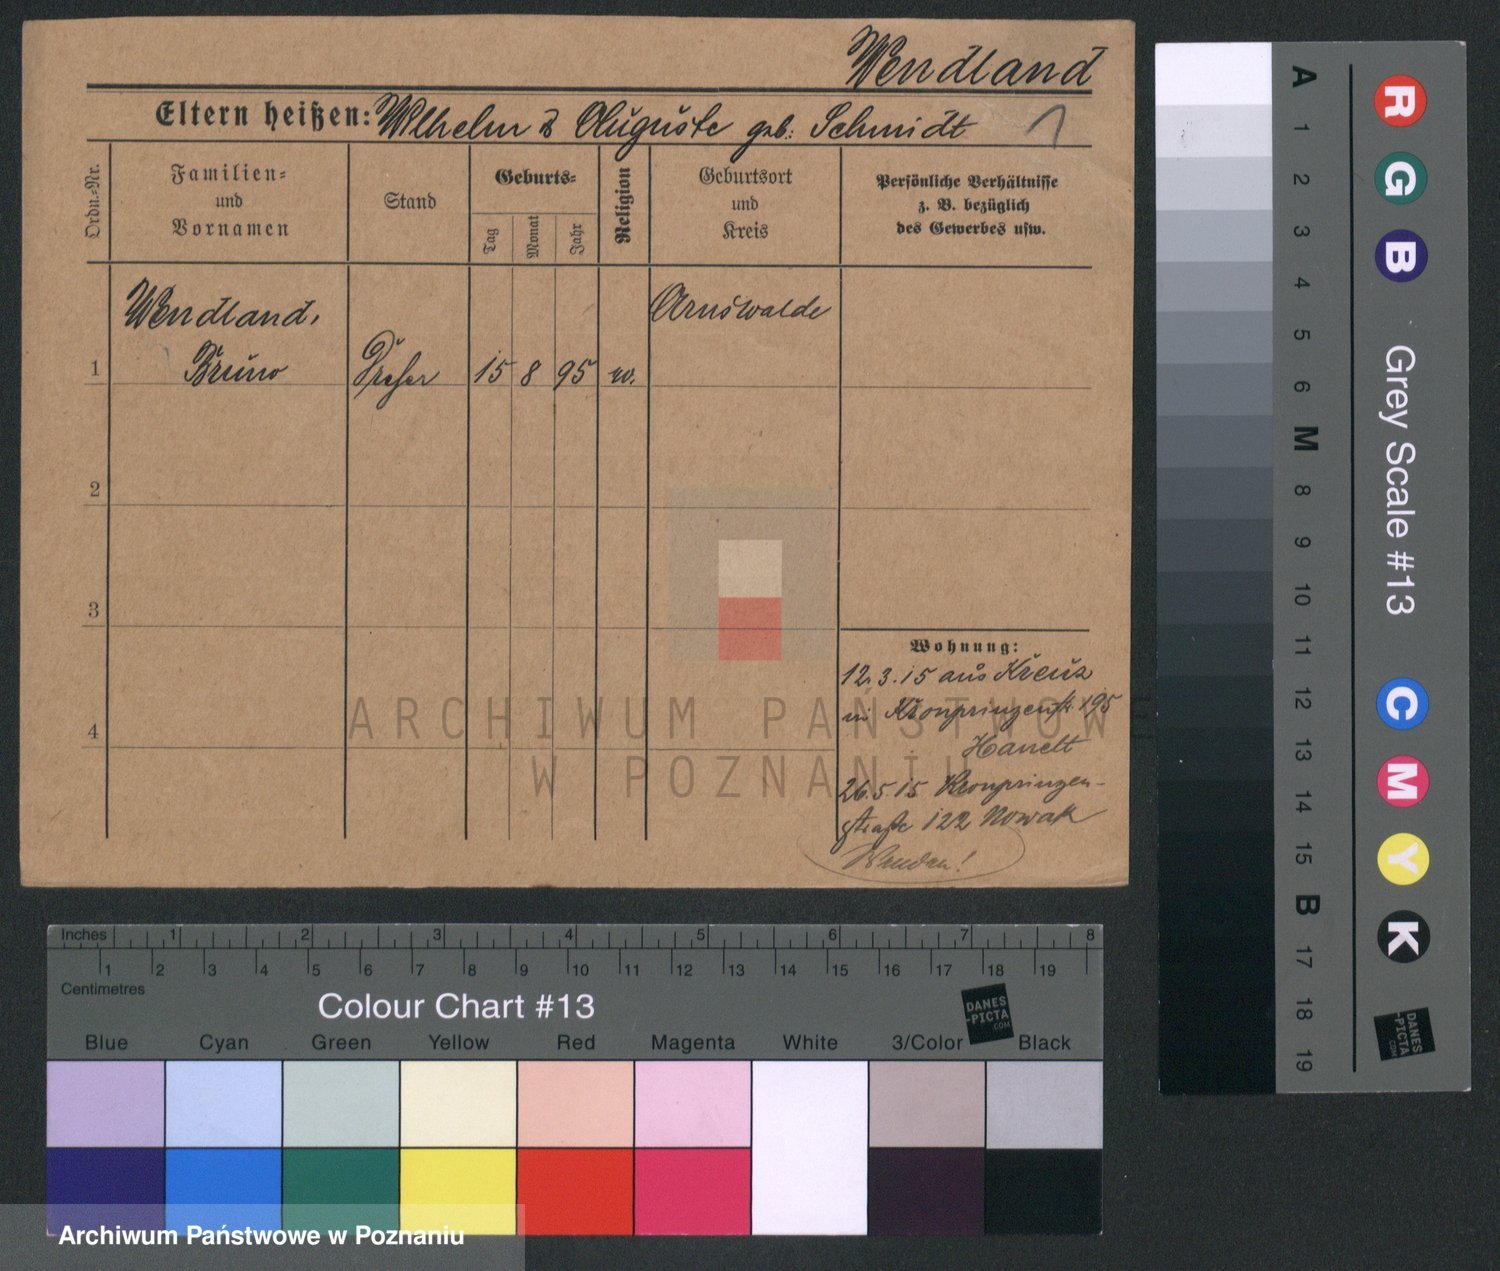 Wendland
Eltern heißen: Wilhelm & Auguste geb: Schmidt
1
Ordn.-Nr.
Familien-
und
Vornamen
Stand
Geburts-
Tag
Monat
Jahr
Religion
Geburtsort
und
Kreis
Persönliche Verhältnisse
z. B. bezüglich
des Gewerbes usw.
Wendland,
Arnswalde
1 Bruno Dreher 15 8 95 ev.
2
3
4
Wohnung:
12.3.15 aus Kreuz
in Kronprinzenstr. 195
Hanelt
26.5.15 Kronprinzen-
straße 122 Nowak
Wenden!
ARCHIWUM PAŃSTWOWE
W POZNANIU
Inches 1 2 3 4 5 6 7 8
1 2 3 4 5 6 7 8 9 10 11 12 13 14 15 16 17 18 19
Centimetres
Colour Chart #13
DANES
-PICTA
.COM
Blue Cyan Green Yellow Red Magenta White 3/Color Black
Archiwum Państwowe w Poznaniu
A 1 2 3 4 5 6 M 8 9 10 11 12 13 14 15 B 17 18 19
R G B Grey Scale #13 C M Y K
DANES
-PICTA
.COM